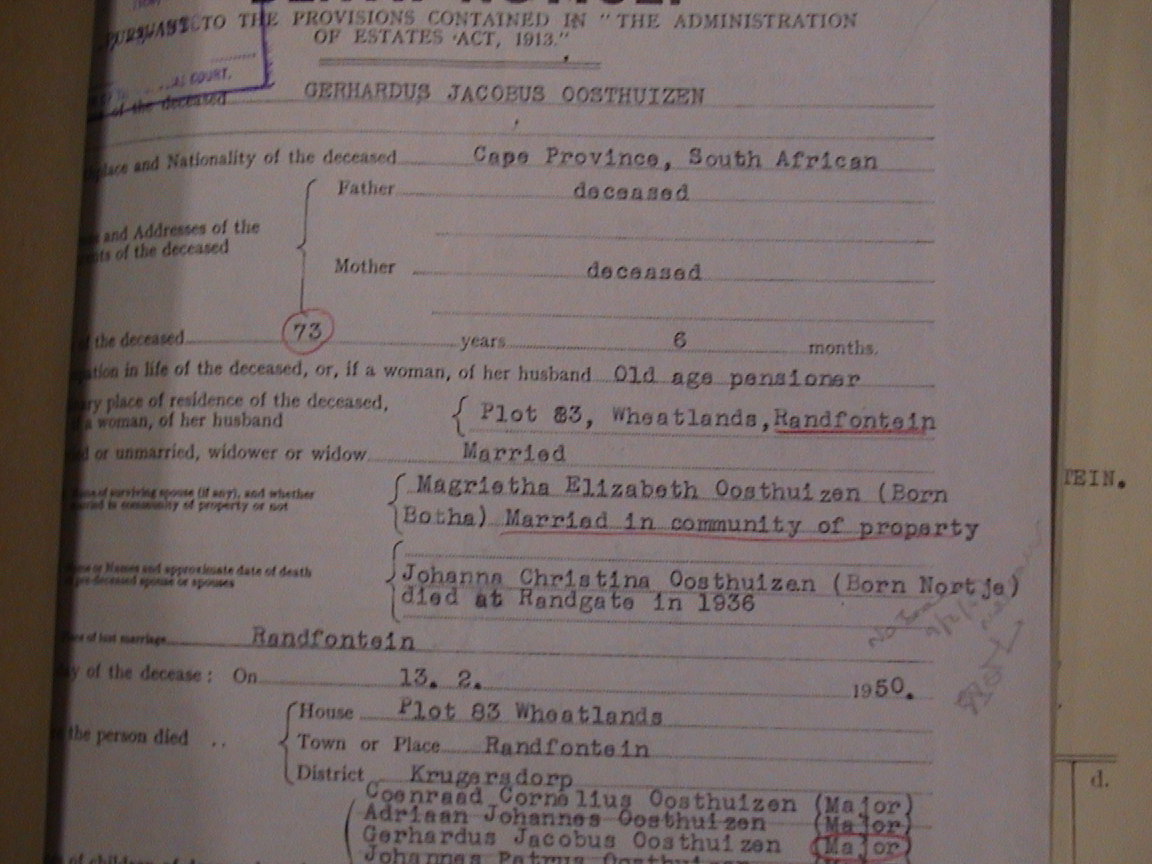 PURSUANT TO THE PROVISIONS CONTAINED IN "THE ADMINISTRATION
OF ESTATES ACT, 1913."
COURT.
of the deceased GERHARDUS JACOBUS OOSTHUIZEN
place and Nationality of the deceased Cape Province, South African
Father deceased
and Addresses of the
nts of the deceased
Mother deceased
of the deceased 73 years 6 months.
ation in life of the deceased, or, if a woman, of her husband Old age pensioner
ary place of residence of the deceased,
a woman, of her husband
Plot 83, Wheatlands, Randfontein
or unmarried, widower or widow Married
Name of surviving spouse (if any), and whether
married in community of property or not
Magrietha Elizabeth Oosthuizen (Born
Botha) Married in community of property
Name or Names and approximate date of death
of pre-deceased spouse or spouses
Johanna Christina Oosthuizen (Born Nortje)
died at Randgate in 1936
Place of last marriage Randfontein
day of the decease: On 13. 2. 1950.
the person died ..
House Plot 83 Wheatlands
Town or Place Randfontein
District Krugersdorp
Coenraad Cornelius Oosthuizen (Major)
Adriaan Johannes Oosthuizen (Major)
Gerhardus Jacobus Oosthuizen (Major)
Johannes Petrus Oosthuizen
of children of
TEIN.
d.